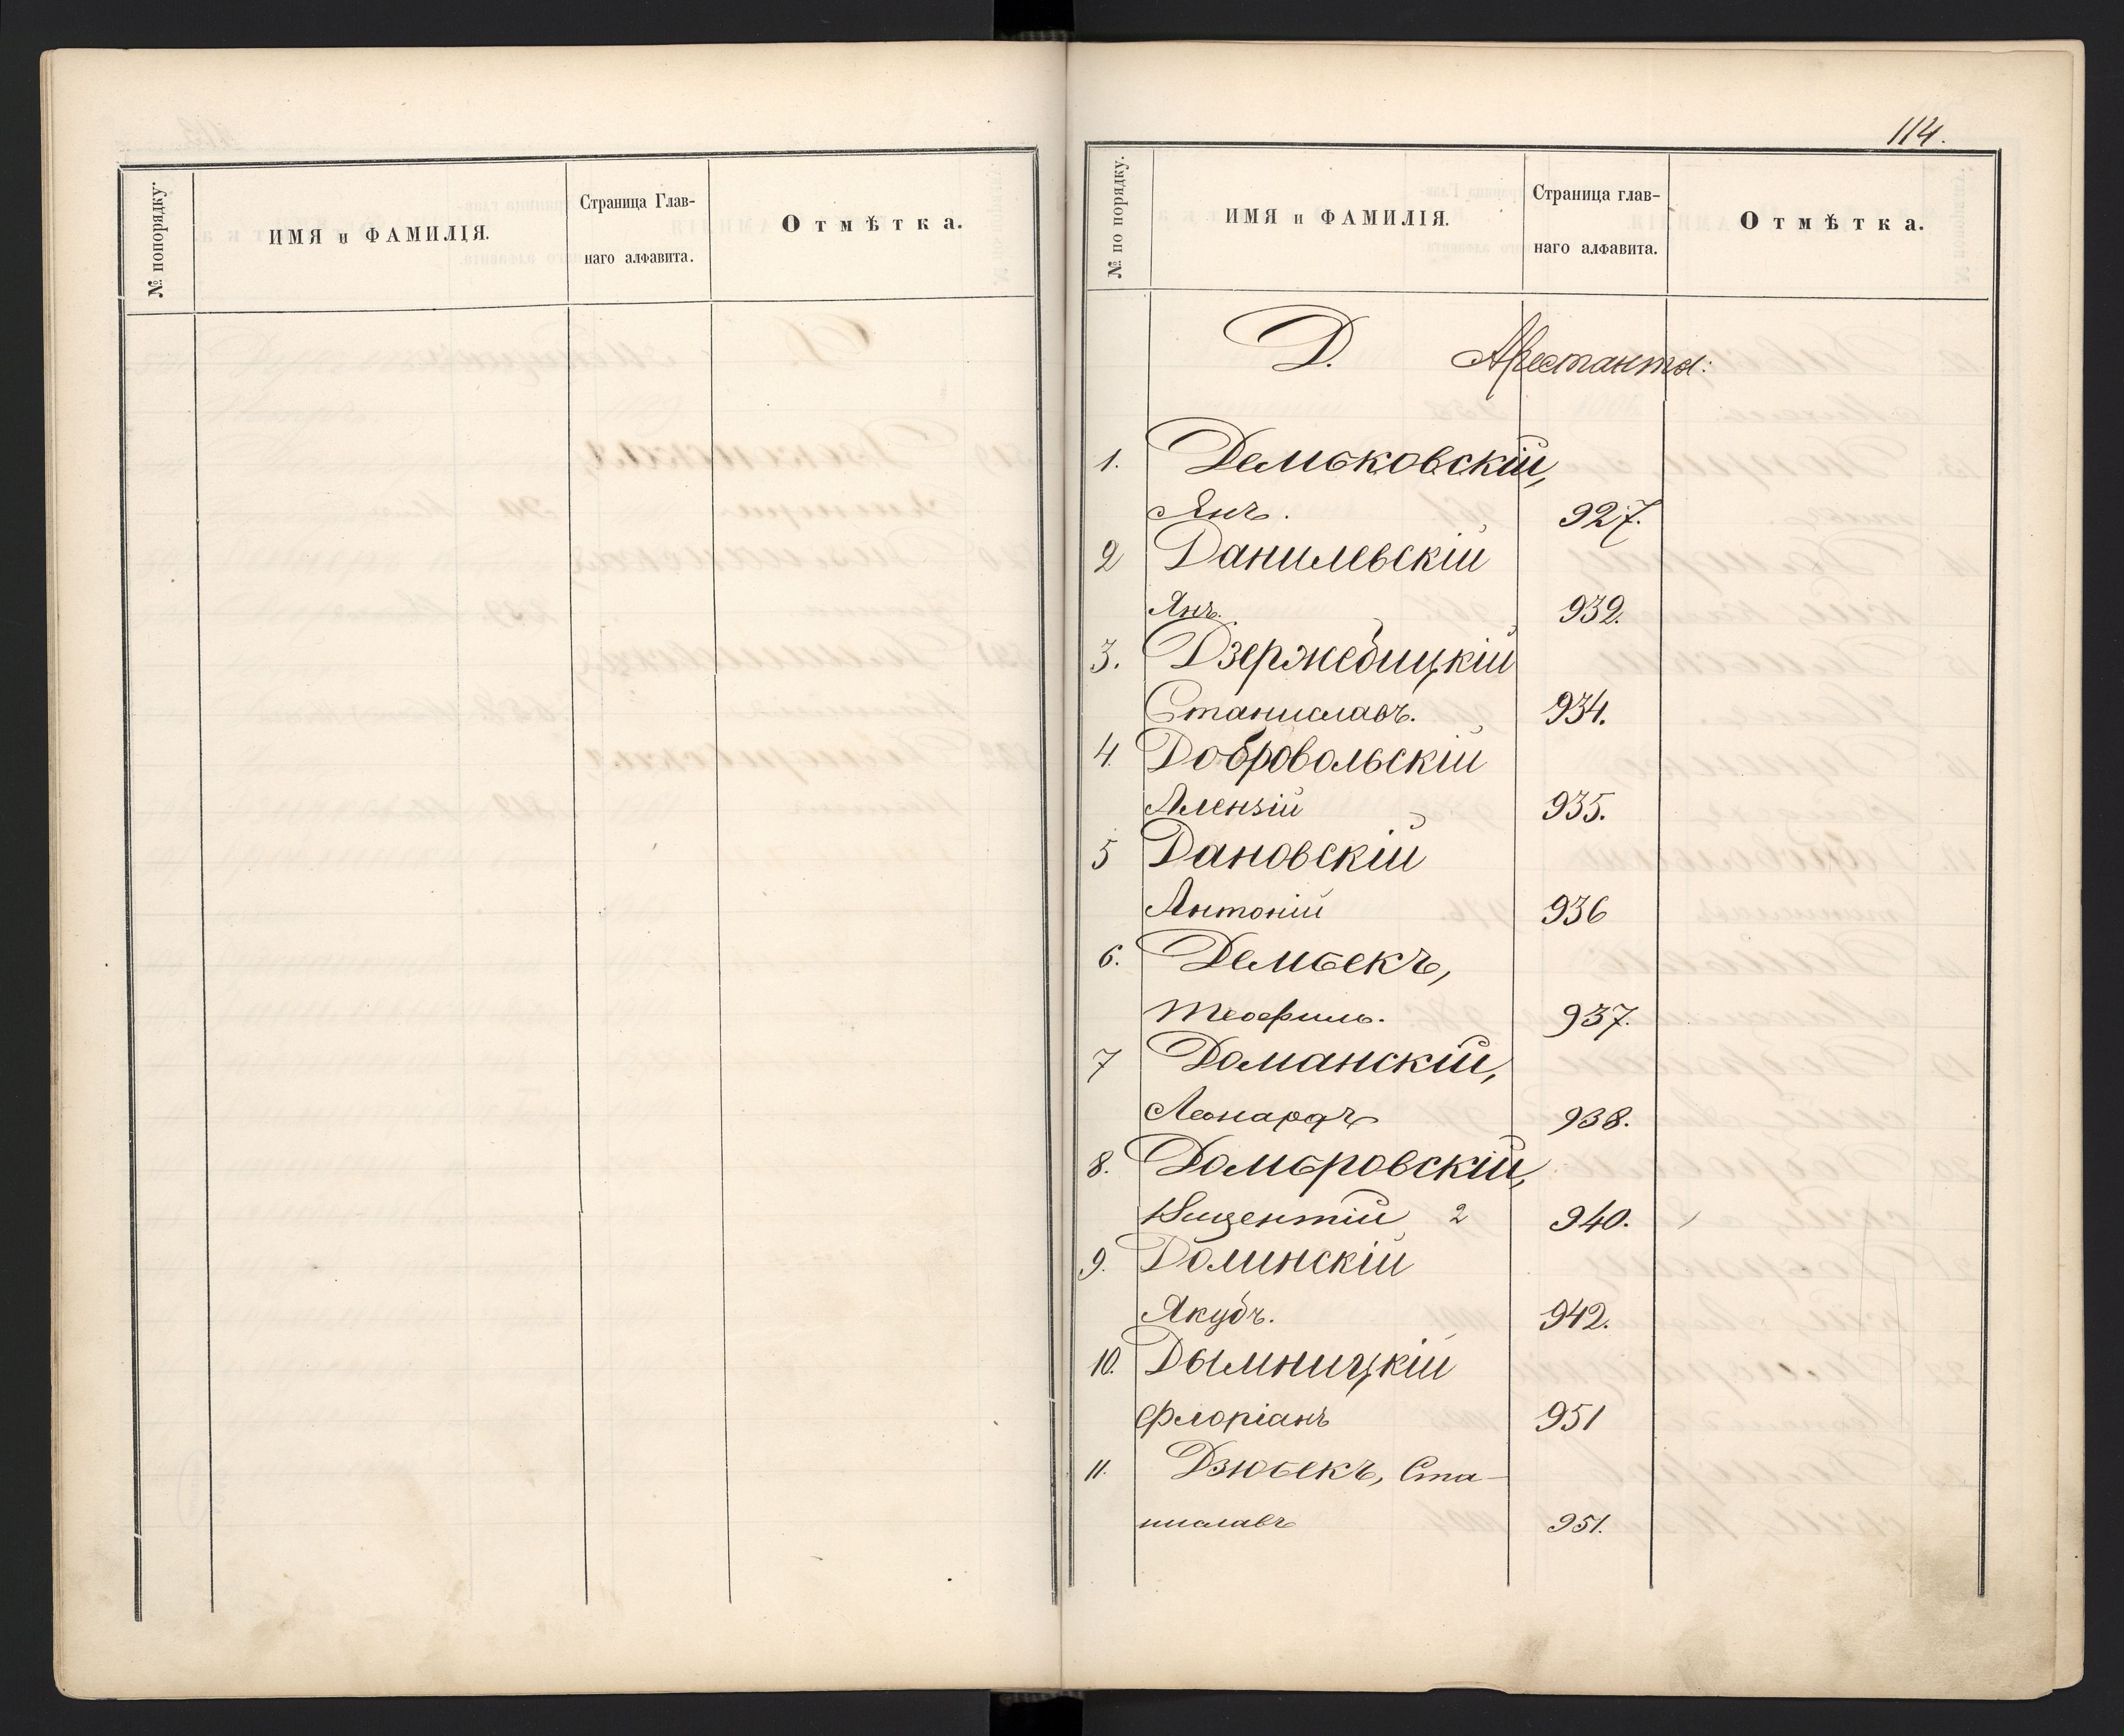 № попорядку.
ИМЯ и ФАМИЛІЯ.
Страница Глав-
наго алфавита.
Отмѣтка.
114.
№ по порядку.
ИМЯ и ФАМИЛІЯ.
Страница глав-
наго алфавита.
Отмѣтка.
Д. Арестанты:
1. Демьковскій,
Янъ. 927.
2 Данилевскій
Янъ. 932.
3. Дзержебицкій
Станиславъ. 934.
4. Добровольскій
935.
5 Дановскій
Антоній 936
6. Дембекъ,
Теофиль. 937.
7 Доманскій,
Леонардъ 938.
8. Домбровскій,
Вицентій 2 940.
9. Долинскій
Якубъ. 942.
10. Дымницкій
Флоріанъ 951
11. Дзюбекъ, Ста-
ниславъ 951.